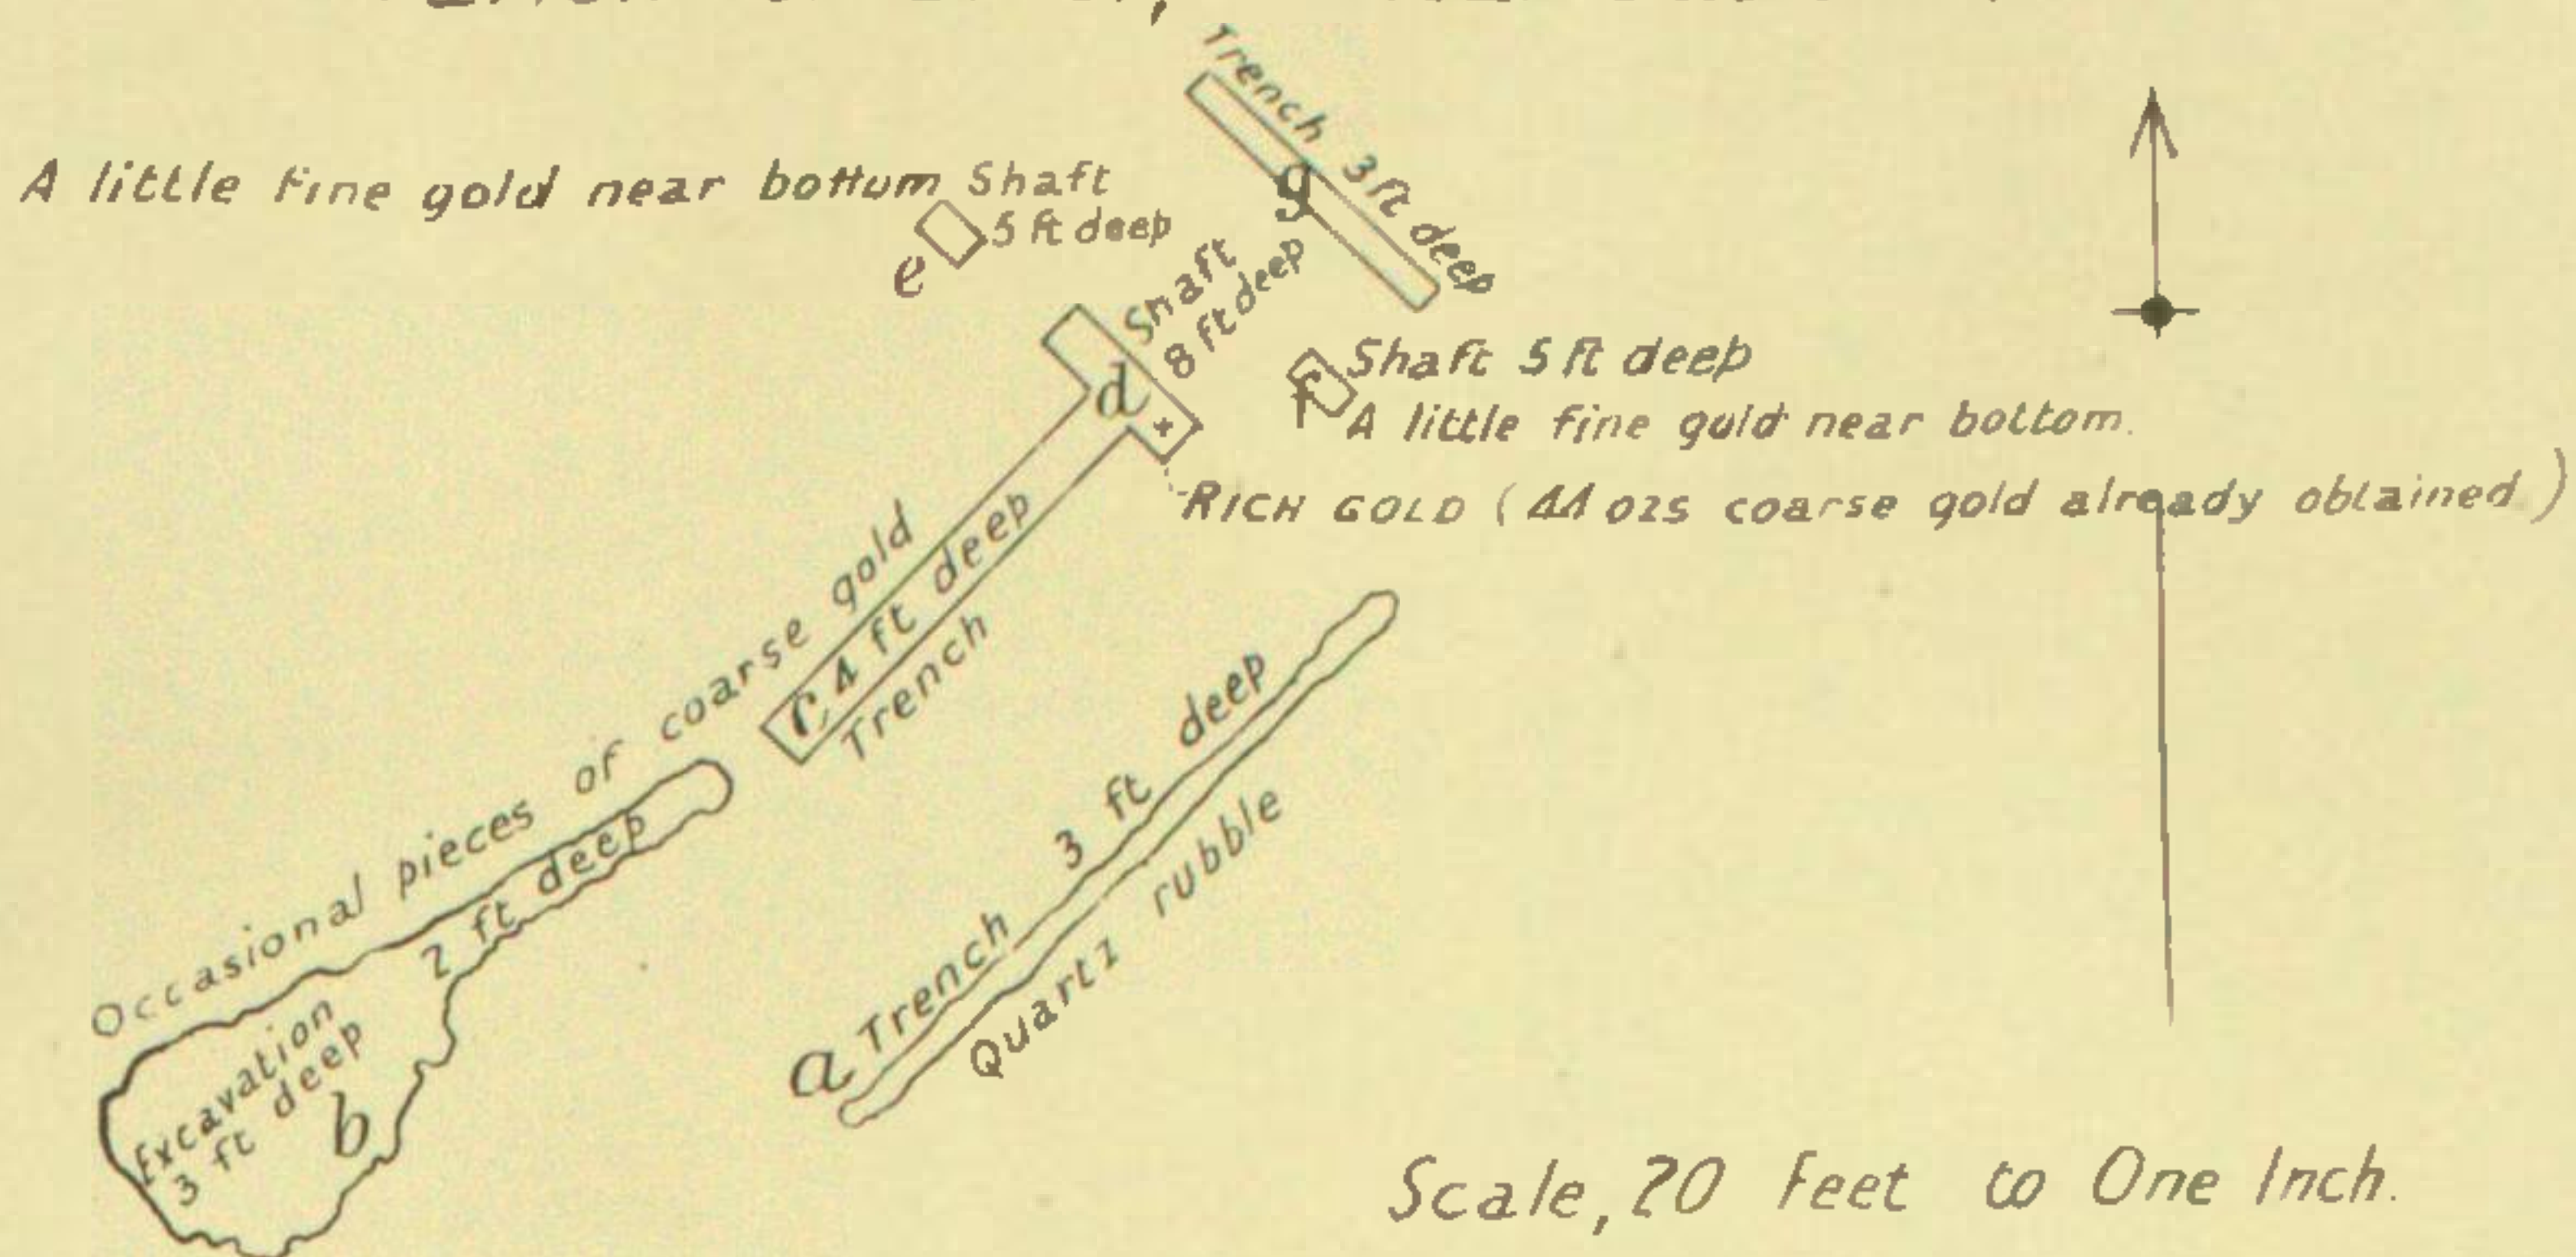 Trench 3 ft deep
g
A little fine gold near bottom
Shaft
5 ft deep
e
Shaft
8 ft deep
d
f
Shaft 5 ft deep
A little fine gold near bottom.
RICH GOLD (44 ozs coarse gold already obtained)
Occasional pieces of coarse gold
c 4 ft deep
Trench
2 ft deep
Excavation
3 ft deep
b
a Trench 3 ft deep
Quartz rubble
Scale, 20 Feet to One Inch.